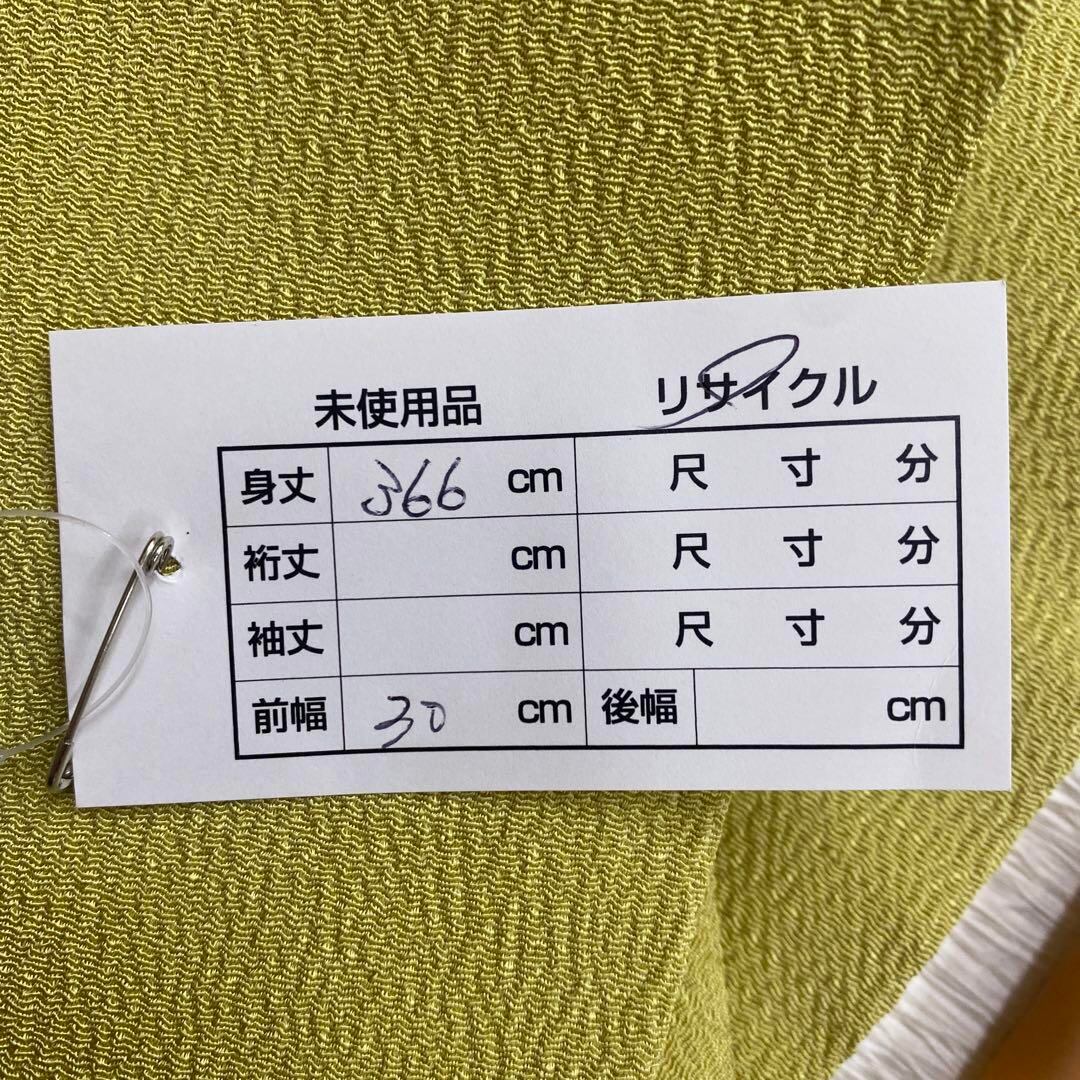 未使用品 リサイクル
身丈 366 cm 尺 寸 分
裄丈 cm 尺 寸 分
袖丈 cm 尺 寸 分
前幅 30 cm 後幅 cm